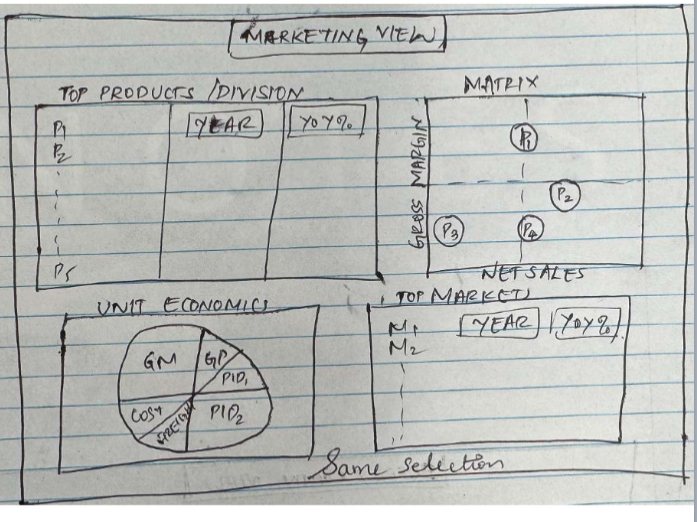 MARKETING VIEW
TOP PRODUCTS /DIVISION
YEAR YOY%
P1
P2
P5
MATRIX
GROSS MARGIN
P1
P2
P3 P4
NET SALES
UNIT ECONOMICS
GM GP
PID1
COST FREIGHT PID2
TOP MARKETS
M1 YEAR YOY%
M2
Same selection